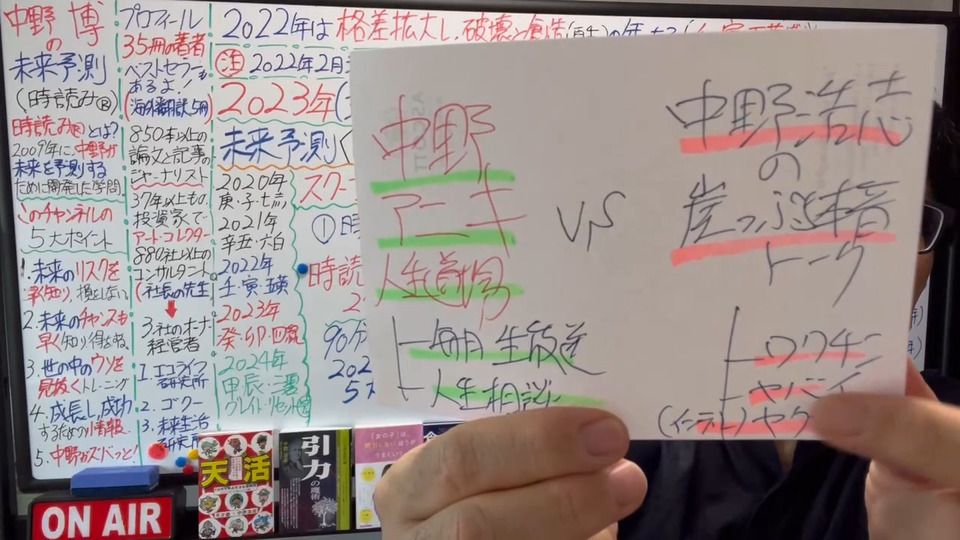 中野 博
の
未来予測
(時読み®)
時読み®とは?
2009年に、中野が
未来を予測する
ために開発した学問
このチャンネルの
5大ポイント
1.未来のリスクを
早く知り、損をしない
2.未来のチャンスも
早く知り得する
3.世の中のウソを
見抜くトレーニング
4.成長し成功
するための情報
5.中野がズバッと!
プロフィール
35冊の著者
ベストセラーも
あるよ!
(海外翻訳5冊)
850本以上の
論文と記事の
ジャーナリスト
37年以上もの
投資家で
アートコレクター
880社以上の
コンサルタント
(社長の先生
3社のオーナー
経営者
1.エコライフ
研究所
2.ゴクー
3.未来生活
研究所
2022年は格差拡大し、破壊と創造
注 2022年2月
2023年(
未来予測く
2020年
庚・子・七赤
2021年
辛・丑・六白
2022年
壬・寅・五黄
2023年
癸・卯・四緑
2024年
甲・辰・三碧
グレイト・リセット
スク
①時
時読
2
90分
202
5大
中野
アニキ
人生道場
毎日生放送
人生相談
VS
中野浩志
の
崖っぷち本音
トーク
ワクチン
ヤバイ
(インテリ)ヤク
天活
引力
の魔術
「女の子」は、
ON AIR